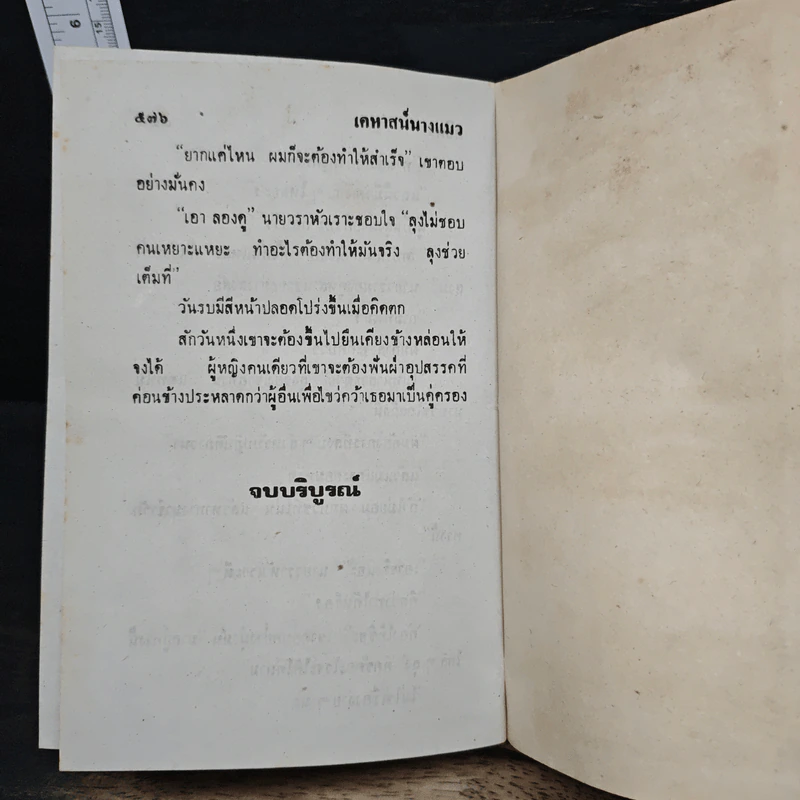 ๕๗๖ เคหาสน์นางแมว
"ยากแค่ไหน ผมก็จะต้องทำให้สำเร็จ" เขาตอบ
อย่างมั่นคง
"เอา ลองดู" นายวราหัวเราะชอบใจ "ลุงไม่ชอบ
คนเหยาะแหยะ ทำอะไรต้องทำให้มันจริง ลุงช่วย
เต็มที่"
วันรบมีสีหน้าปลอดโปร่งขึ้นเมื่อคิดตก
สักวันหนึ่งเขาจะต้องขึ้นไปยืนเคียงข้างหล่อนให้
จงได้ ผู้หญิงคนเดียวที่เขาจะต้องฟันฝ่าอุปสรรคที่
ค่อนข้างประหลาดกว่าผู้อื่นเพื่อไขว่คว้าเธอมาเป็นคู่ครอง
จบบริบูรณ์
6
15